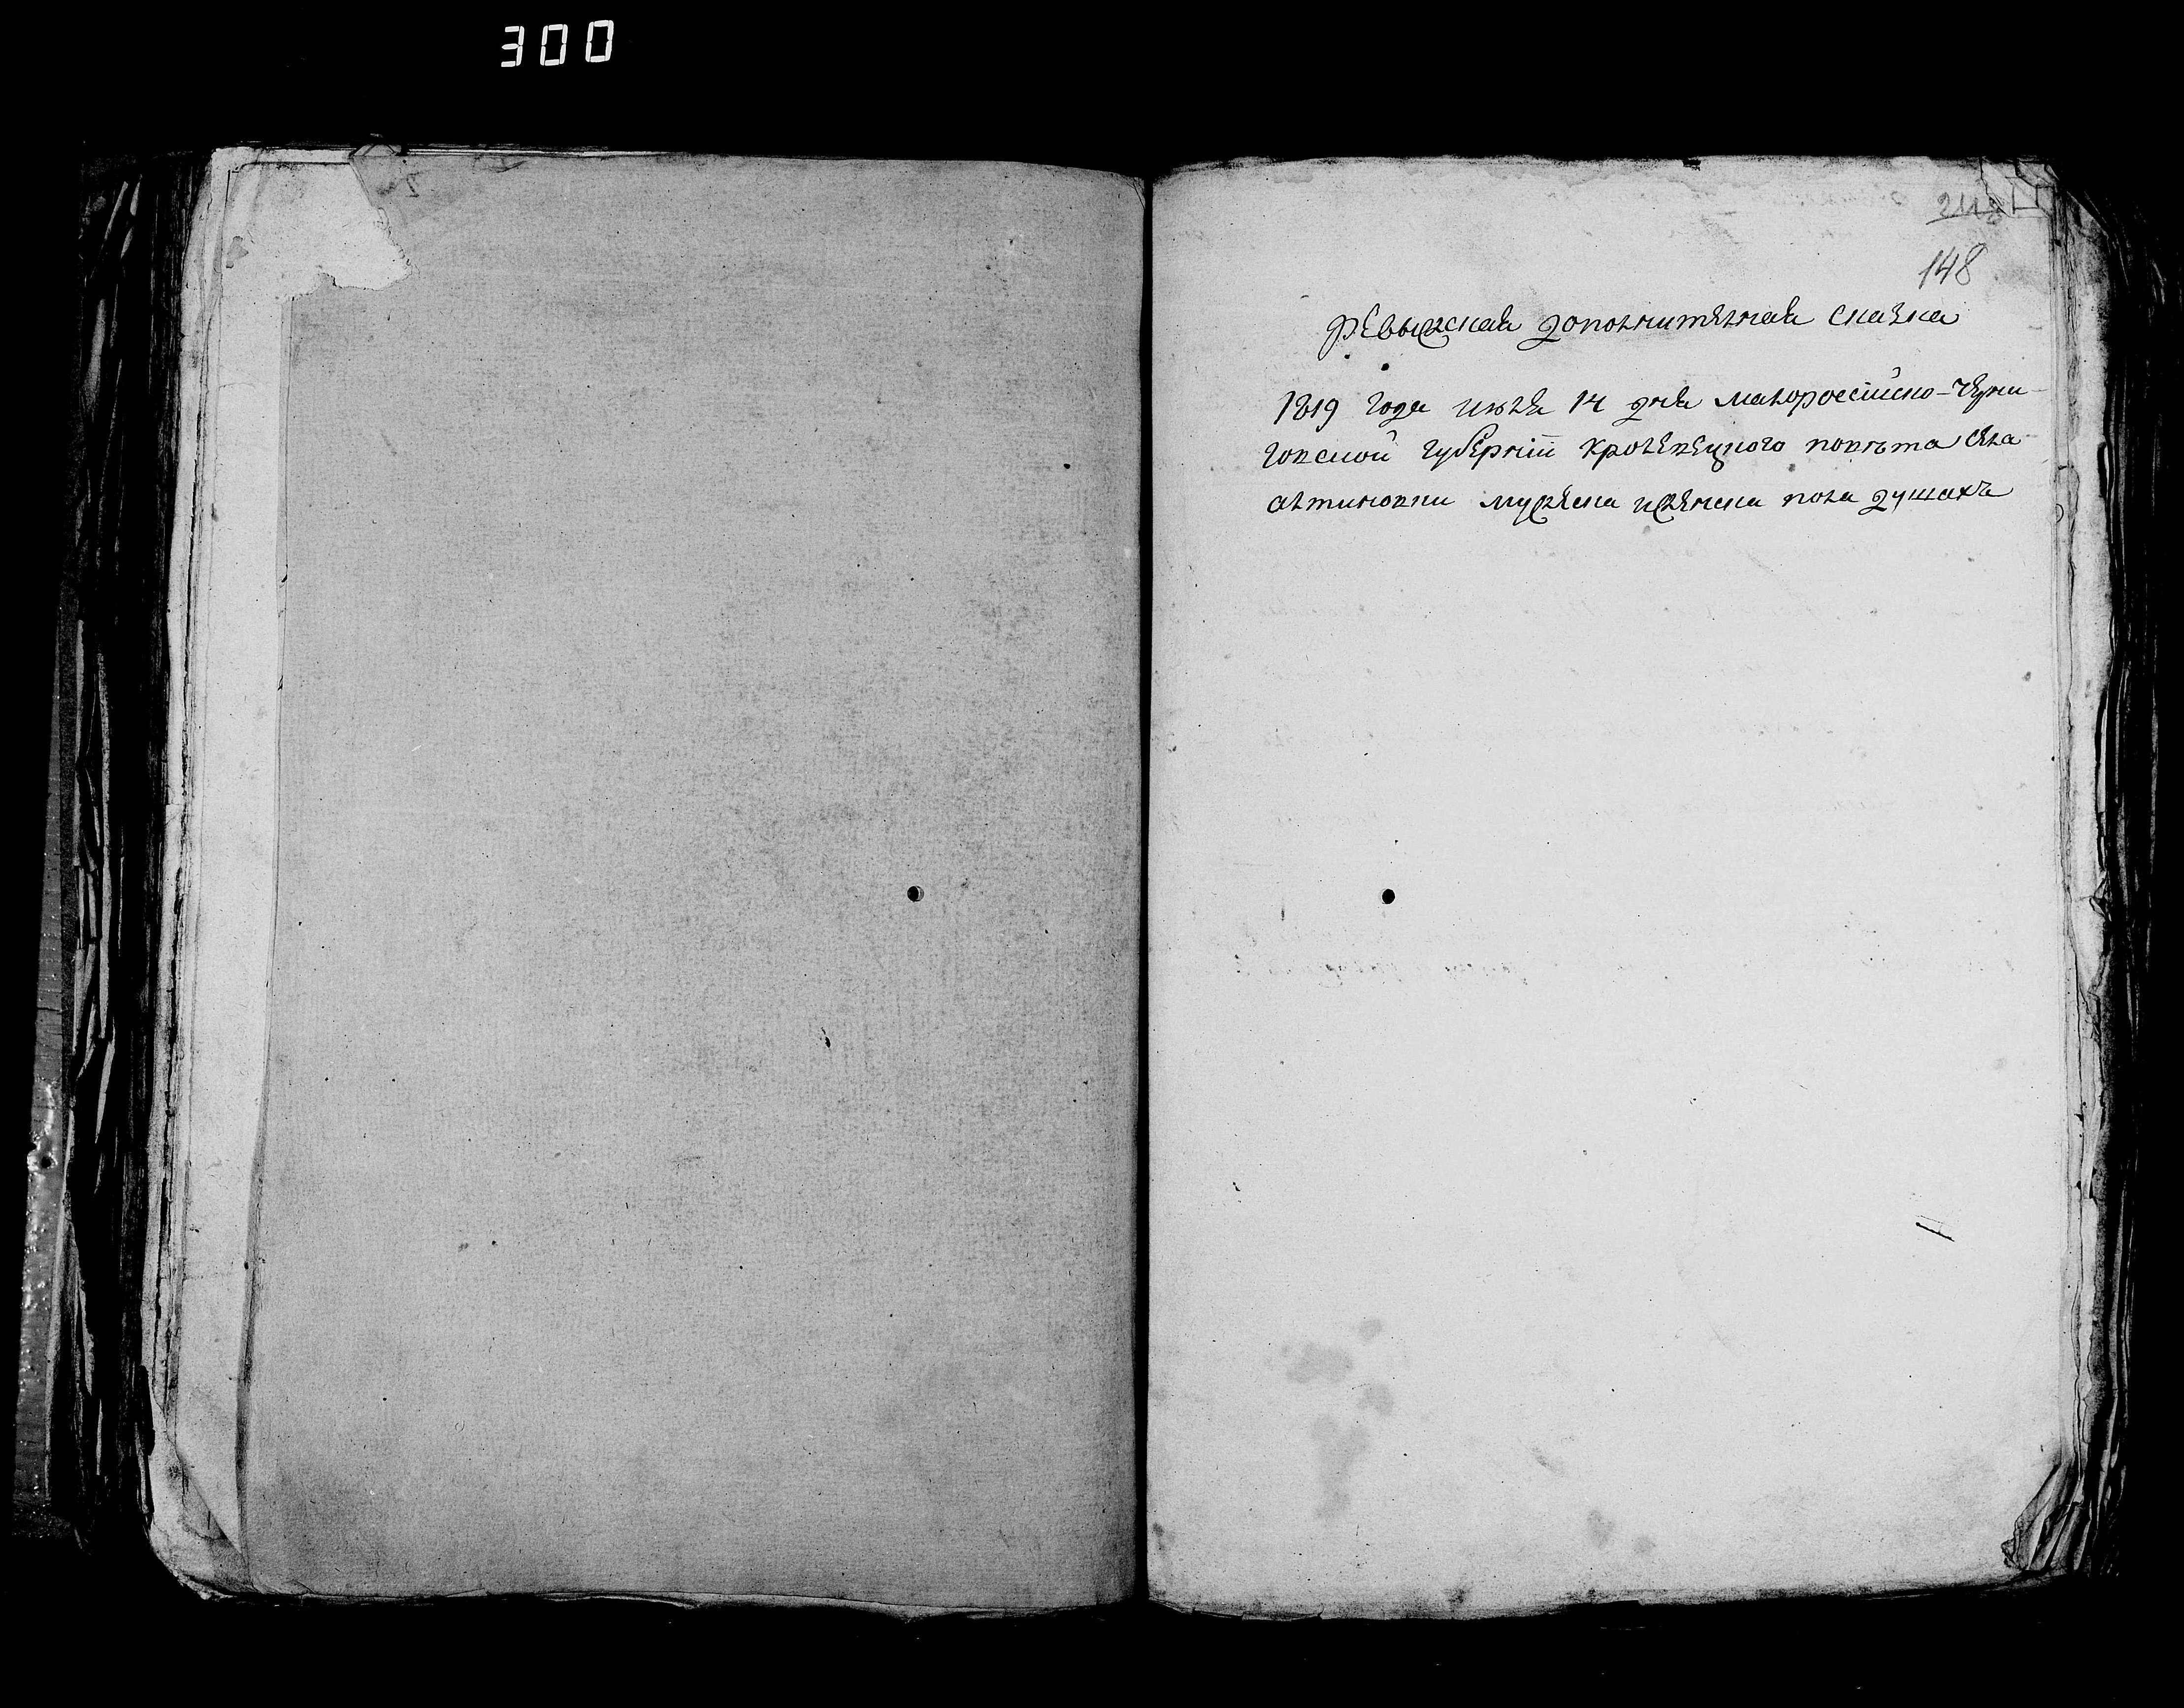 300
148
Ревыжская дополнителная сказка
1819 года июля 14 дня малороссійско-черни-
говской губерніи кролевецкого повѣта села
алтиновки мужеска и женска пола душахъ